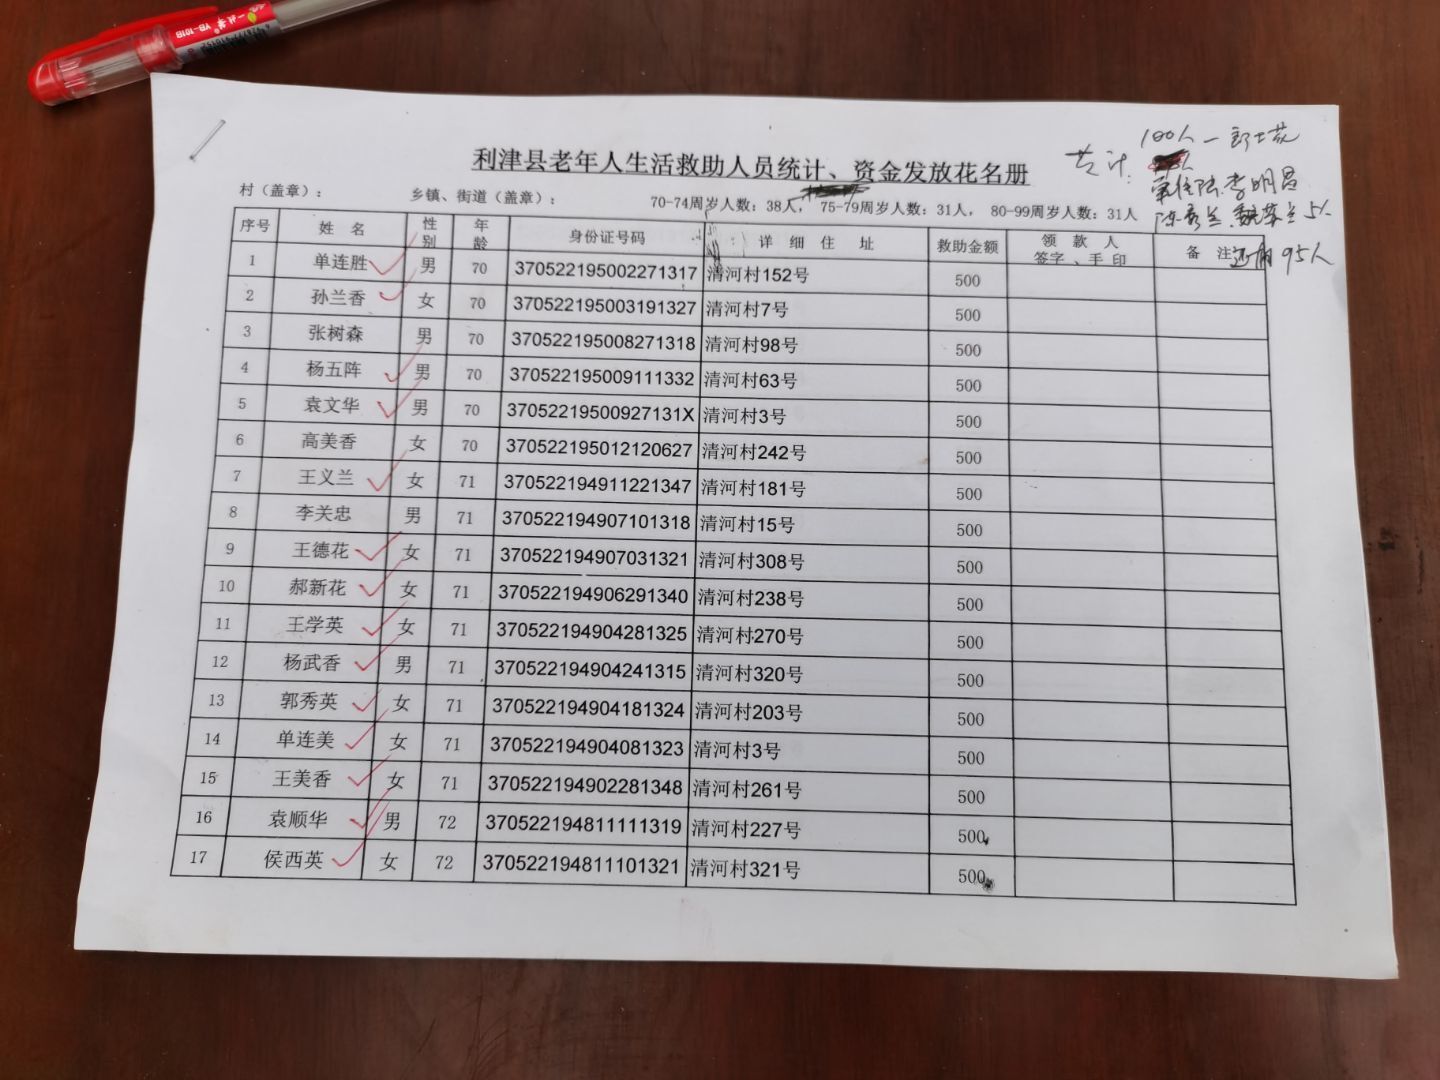 一款笔 YB-101B
利津县老年人生活救助人员统计、资金发放花名册
共计: 100人
李明昌
95人
村（盖章）: 乡镇、街道（盖章）: 70-74周岁人数: 38人, 75-79周岁人数: 31人, 80-99周岁人数: 31人
序号 姓 名 性别 年龄 身份证号码 详 细 住 址 救助金额 领 款 人 签字 、手 印 备 注
1 单连胜 男 70 370522195002271317 清河村152号 500
2 孙兰香 女 70 370522195003191327 清河村7号 500
3 张树森 男 70 370522195008271318 清河村98号 500
4 杨五阵 男 70 370522195009111332 清河村63号 500
5 袁文华 男 70 37052219500927131X 清河村3号 500
6 高美香 女 70 370522195012120627 清河村242号 500
7 王义兰 女 71 370522194911221347 清河村181号 500
8 李关忠 男 71 370522194907101318 清河村15号 500
9 王德花 女 71 370522194907031321 清河村308号 500
10 郝新花 女 71 370522194906291340 清河村238号 500
11 王学英 女 71 370522194904281325 清河村270号 500
12 杨武香 男 71 370522194904241315 清河村320号 500
13 郭秀英 女 71 370522194904181324 清河村203号 500
14 单连美 女 71 370522194904081323 清河村3号 500
15 王美香 女 71 370522194902281348 清河村261号 500
16 袁顺华 男 72 370522194811111319 清河村227号 500
17 侯西英 女 72 370522194811101321 清河村321号 500